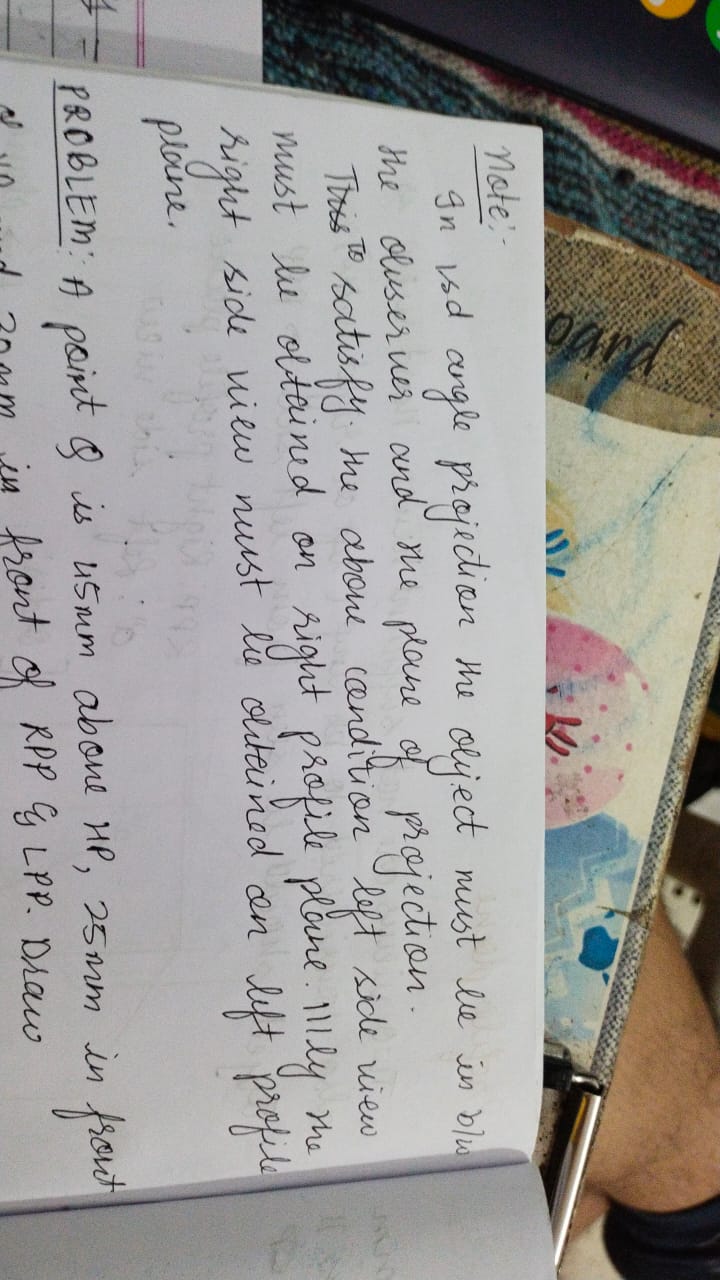 Board
Note:-
In Ist angle projection the object must be in b/w
the observer and the plane of projection.
This To satisfy. the above condition left side view
must be obtained on right profile plane. IIIly the
right side view must be obtained on left profile
plane.
PROBLEM: A point Q is 45mm above HP, 25mm in front
of VP and 30mm in front of RPP & LPP. Draw